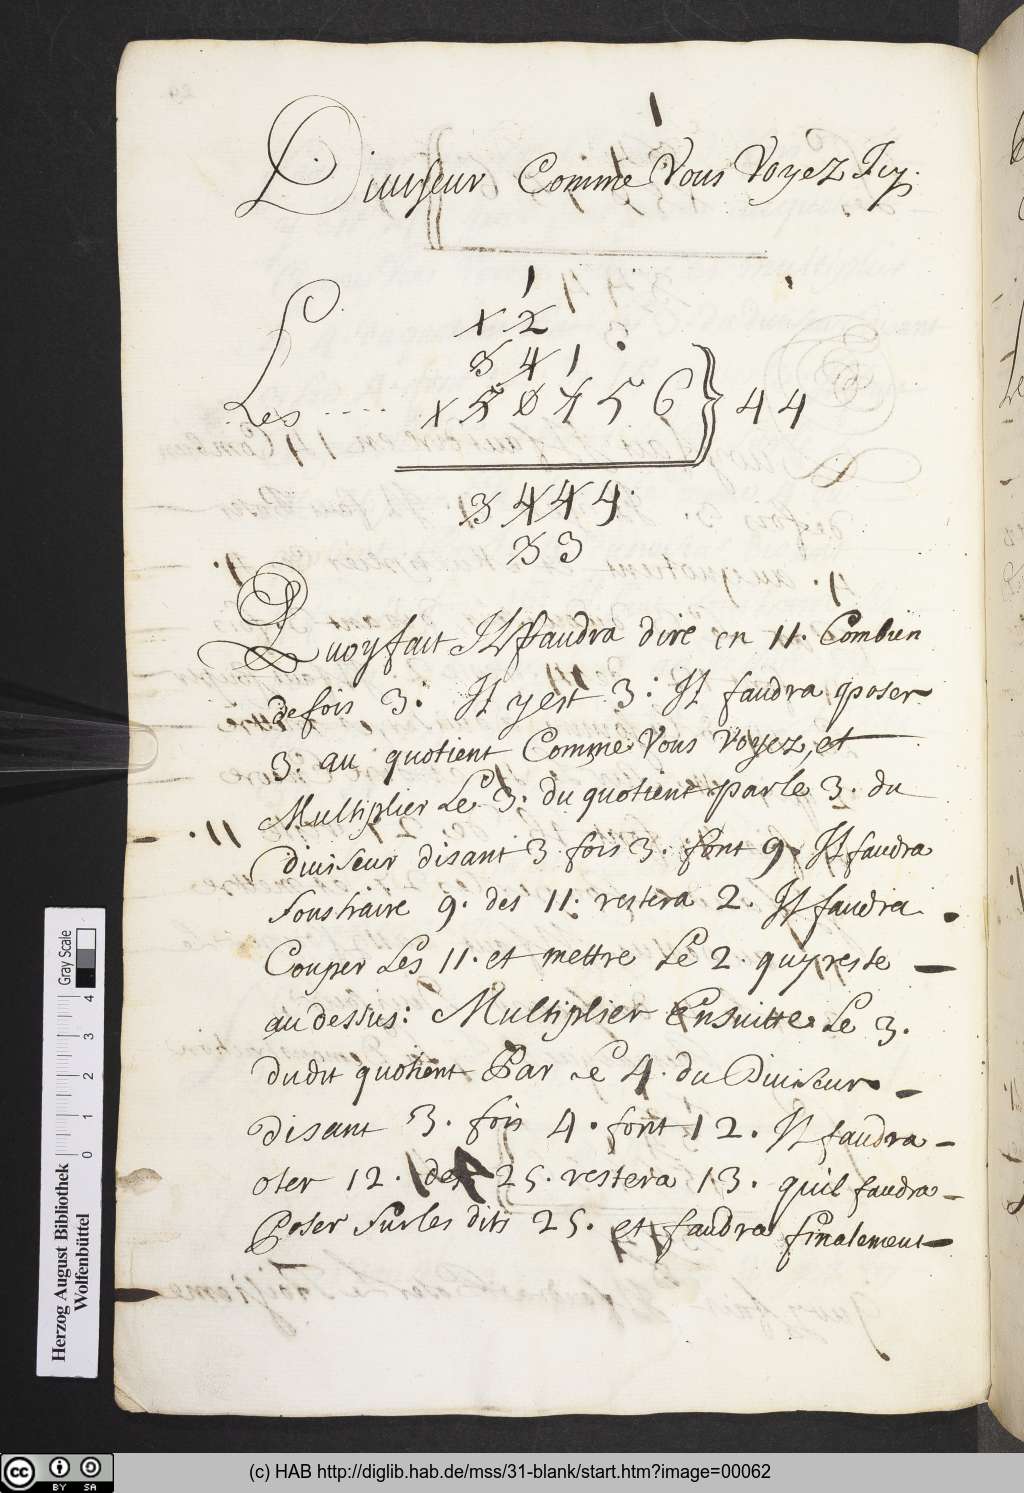 Diuiseur Comme Vous Voyez Icy.
1
x 2
3 4 1
Les .... x 5 0 4 5 6 } 4 4
3 4 4 4.
3 3
Quoy fait Il faudra dire en 11. Combien
de fois 3: Il y est 3: Il faudra poser
3. au quotient Comme Vous Voyez, et
Multiplier Le 3. du quotient par le 3. du
diuiseur disant 3 fois 3. font 9. Il faudra
soustraire 9. des 11. restera 2. Il faudra
Couper Les 11. et mettre Le 2. quy reste
au dessus: Multiplier Ensuitte Le 3.
dudit quotient Par Le 4. du Diuiseur
disant 3. fois 4. font 12. Il faudra
oter 12. des 25. restera 13. quil faudra
Poser sur les dits 25. et faudra finalement
Herzog August Bibliothek
Wolfenbüttel
Gray Scale
0 1 2 3 4
CC BY SA
(c) HAB http://diglib.hab.de/mss/31-blank/start.htm?image=00062